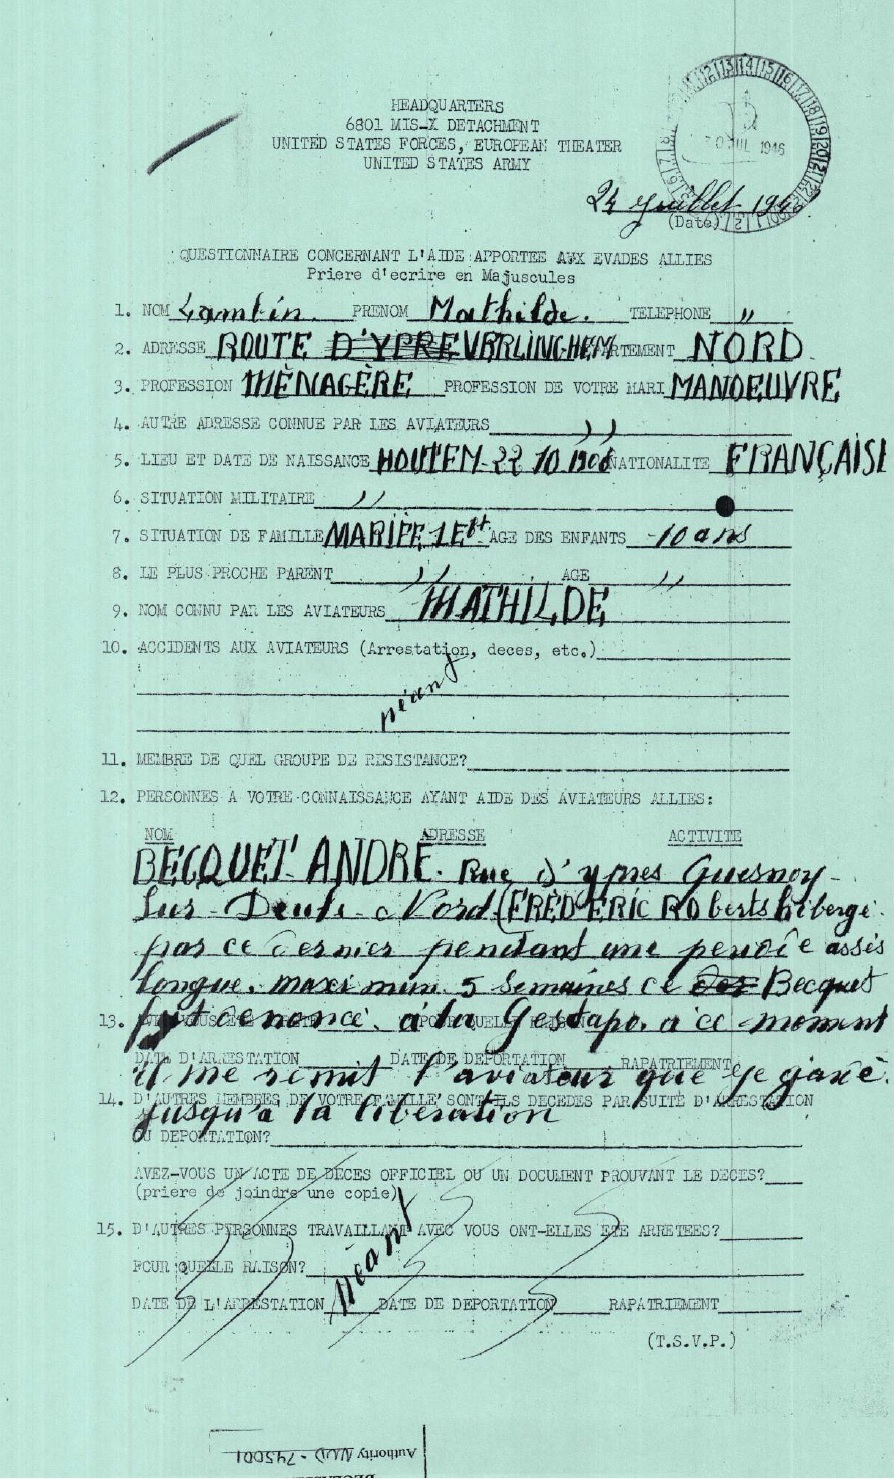 HEADQUARTERS
6801 MIS-X DETACHMENT
UNITED STATES FORCES, EUROPEAN THEATER
UNITED STATES ARMY
12 13 14 15 16 17 18 19 20
JUL 1946
24 Juillet 194
(Date)
QUESTIONNAIRE CONCERNANT L'AIDE APPORTEE AUX EVADES ALLIES
Priere d'ecrire en Majuscules
1. NOM Lambin. PRENOM Mathilde. TELEPHONE "
2. ADRESSE ROUTE D'YPRE VERLINGHEM NORD.
3. PROFESSION MÈNAGÈRE PROFESSION DE VOTRE MARI MANOEUVRE
4. AUTRE ADRESSE CONNUE PAR LES AVIATEURS "
5. LIEU ET DATE DE NAISSANCE HOUTEM-22 10 1906 NATIONALITE FRANÇAISE
6. SITUATION MILITAIRE "
7. SITUATION DE FAMILLE MARIÉE 1 Eft AGE DES ENFANTS -10 ans
8. LE PLUS PROCHE PARENT " AGE "
9. NOM CONNU PAR LES AVIATEURS MATHILDE
10. ACCIDENTS AUX AVIATEURS (Arrestation, deces, etc.)
néant
11. MEMBRE DE QUEL GROUPE DE RESISTANCE?
12. PERSONNES A VOTRE CONNAISSANCE AYANT AIDE DES AVIATEURS ALLIES:
NOM ADRESSE ACTIVITE
BECQUET ANDRE. Rue d'ypres Quesnoy-
Sur-Deule-Nord (FRÉDERIC ROberts héberge
par ce dernier pendant une periode assés
longue. maximum 5 semaines ce Becquet
13. fut denoncé. à la Gestapo. a ce moment
DATE D'ARRESTATION DATE DE DEPORTATION RAPATRIEMENT
il me remit l'aviateur que je gardé.
14. D'AUTRES MEMBRES DE VOTRE FAMILLE SONT-ILS DECEDES PAR SUITE D'ARRESTATION
jusqu'à la libération
OU DEPORTATION?
AVEZ-VOUS UN ACTE DE DECES OFFICIEL OU UN DOCUMENT PROUVANT LE DECES?
(priere de joindre une copie)
15. D'AUTRES PERSONNES TRAVAILLANT AVEC VOUS ONT-ELLES ETE ARRETEES?
POUR QUELLE RAISON?
néant
DATE DE L'ARRESTATION DATE DE DEPORTATION RAPATRIEMENT
(T.S.V.P.)
Authority NND-745001